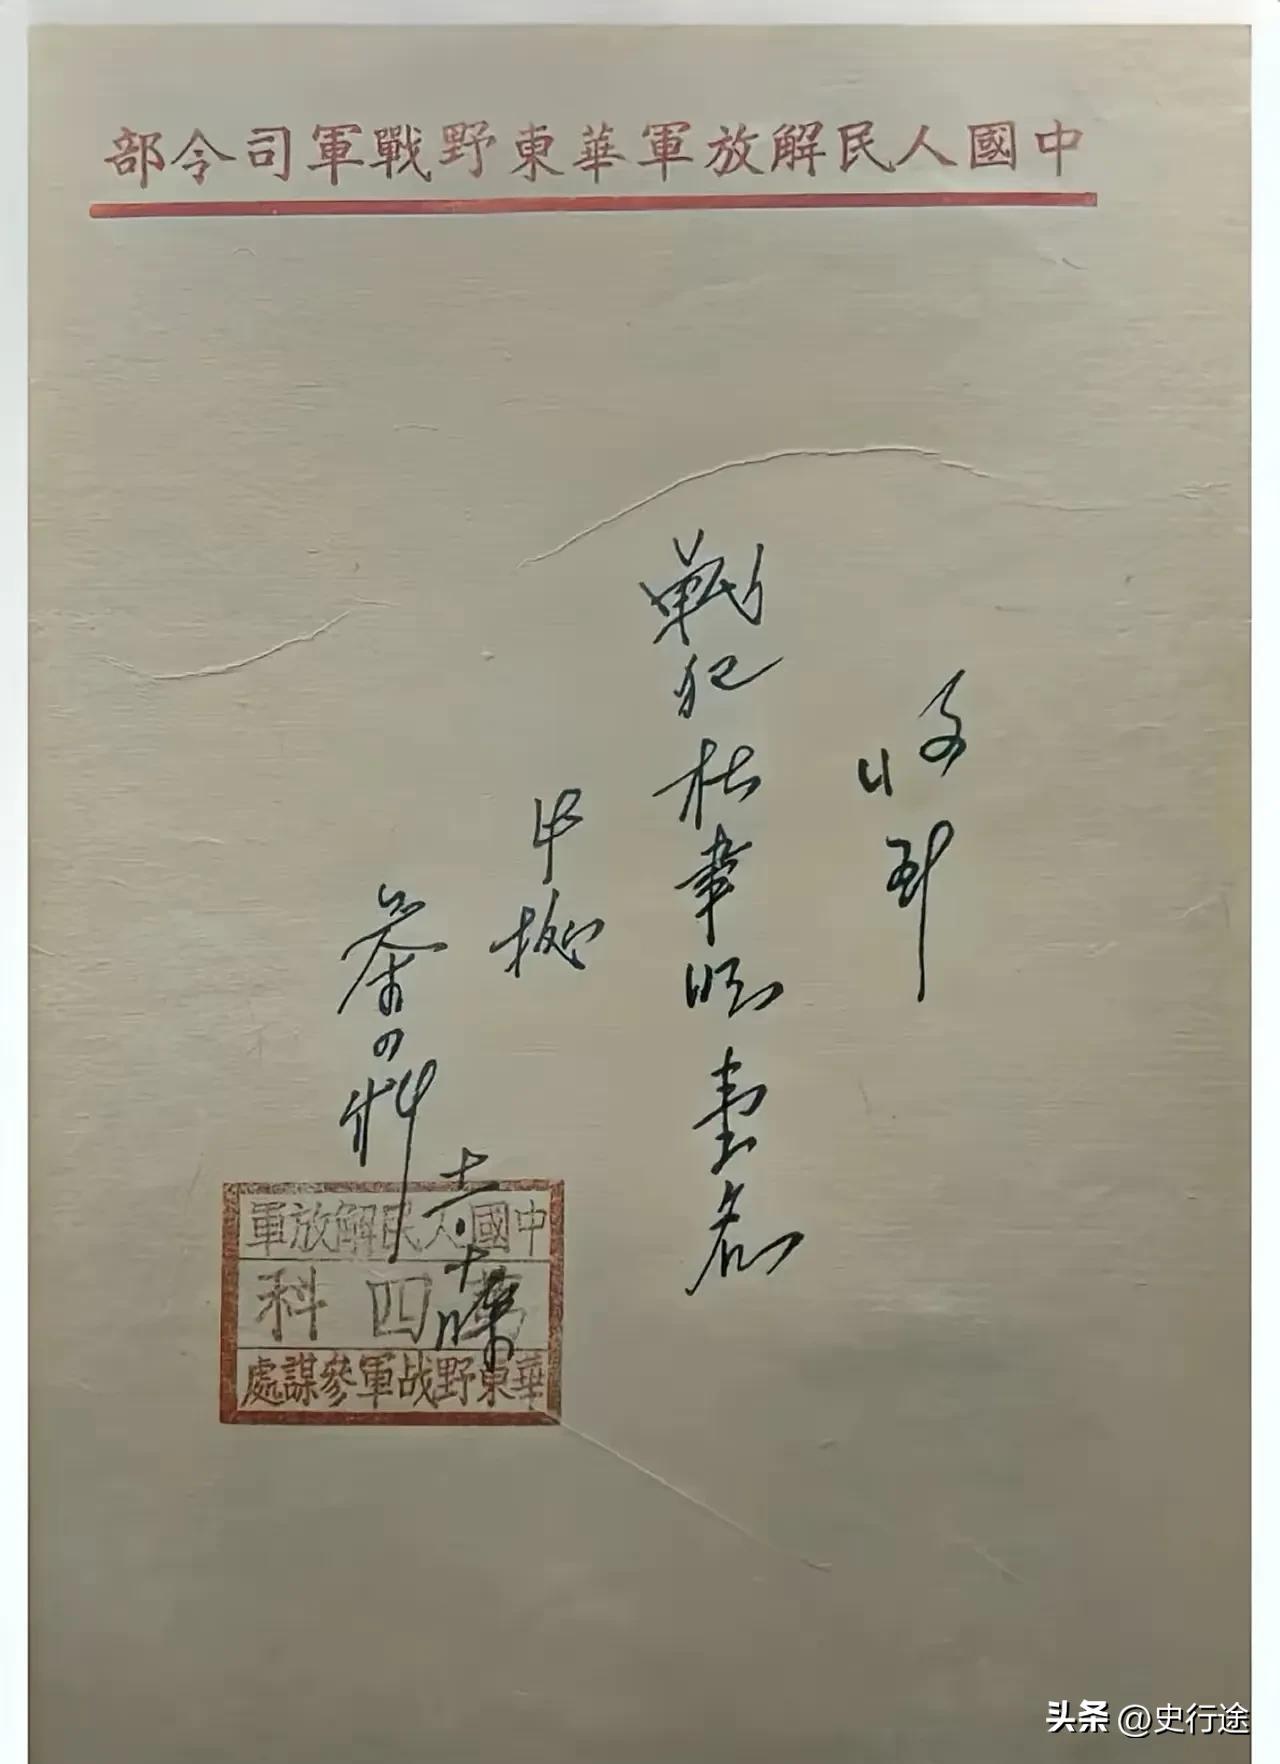 中國人民解放軍華東野戰軍司令部
收到
戰犯杜聿明壹名
據
参四科
中國人民解放軍
四科
華東野战軍參謀處
头条 @史行途